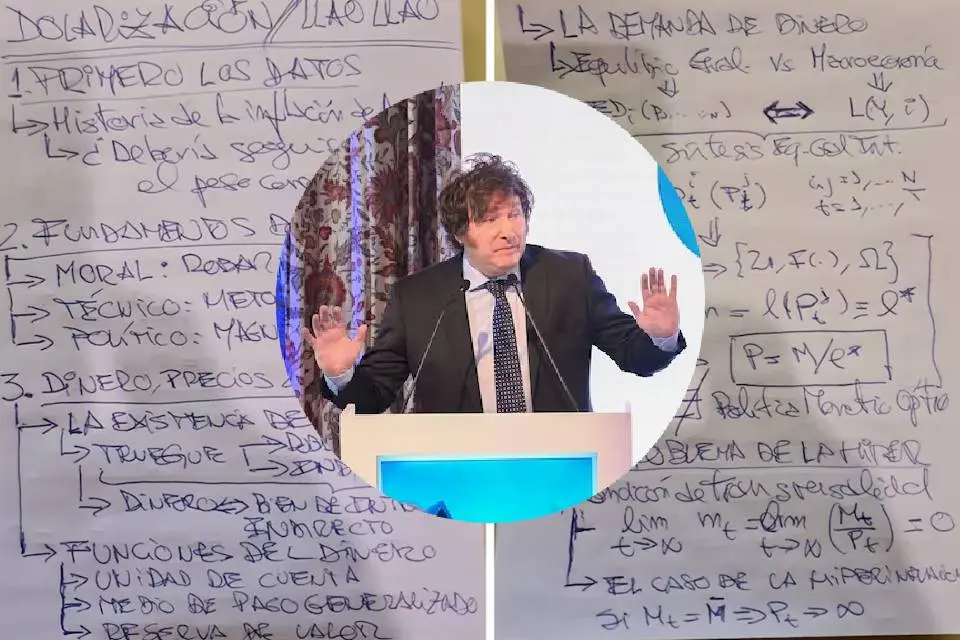 DOLARIZACIÓN/LLAO LLAO
1. PRIMERO LOS DATOS
↳ Historia de la inflación del
↳ ¿Debería seguir
el peso com
2. FUNDAMENTOS D
→ MORAL: ROBAR
→ TÉCNICO: METO
→ POLÍTICO: MAGN
3. DINERO, PRECIOS
→ LA EXISTENCIA DE
↳ TRUEQUE
→ DINERO ↔ BIEN DE INT
INDIRECTO
→ FUNCIONES DEL DINERO
→ UNIDAD DE CUENTA
→ MEDIO DE PAGO GENERALIZADO
→ RESERVA DE VALOR
↳ LA DEMANDA DE DINERO
↳ Equilibrio Gral. vs Macroeconomía
ED_i (P_1... ...) ⟺ L(Y, i)
síntesis Eq. Gral Int.
(P_t^j) i,j=1,...N
t=1,...,
= l(P_t^j) = l*
P = M/l*
Política Monetaria Óptim
OBLEMA DE LA HIPER
Condición de transversalidad
lim t→∞ m_t = lim t→∞ (M_t/P_t) = 0
↳ EL CASO DE LA HIPERINFLACIÓN
Si M_t = M̄ ⇒ P_t → ∞